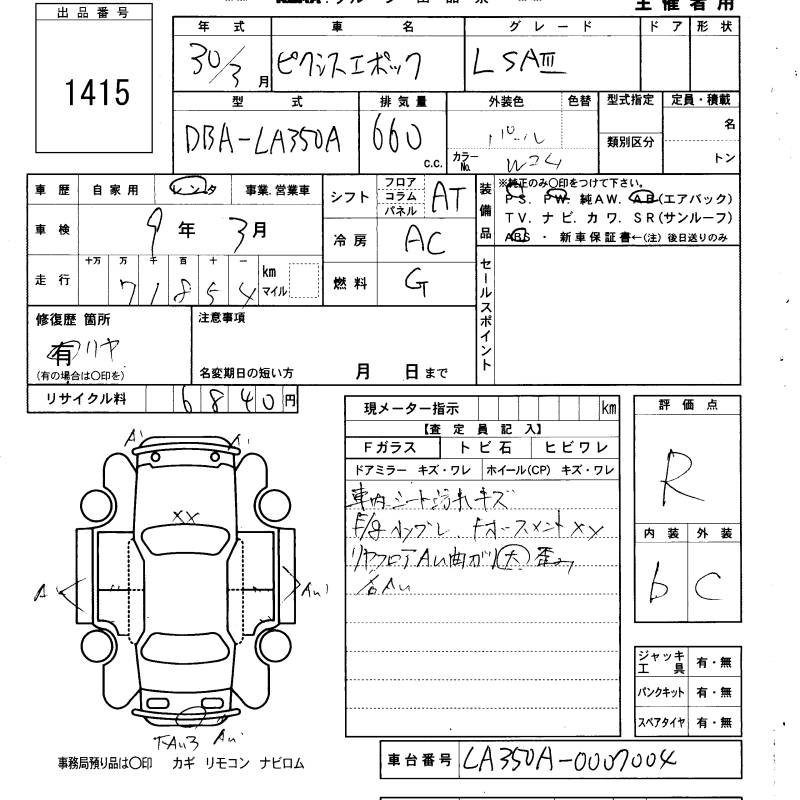 主催者用
出品番号
1415
年式 車名 グレード ドア 形状
30/3月 ピクシスエポック LSAⅢ
型式 排気量 外装色 色替 型式指定 定員・積載
DBA-LA350A 660 c.c. パール カラーNo. W24 類別区分 名
トン
車歴 自家用 レンタ 事業.営業車
車検 9年 3月
走行 十万 万 千 百 十 一
71854 km マイル
シフト フロア コラム パネル AT
冷房 AC
燃料 G
装備品 ※純正のみ○印をつけて下さい。
PS. PW. 純AW. AB(エアバック)
TV. ナビ. カワ. SR(サンルーフ)
ABS ・ 新車保証書←(注) 後日送りのみ
セールスポイント
修復歴 箇所
有 リヤ
(有の場合は○印を)
注意事項
名変期日の短い方 月 日まで
リサイクル料 6840円
現メーター指示 km
【査定員記入】
Fガラス トビ石 ヒビワレ
ドアミラー キズ・ワレ ホイール(CP) キズ・ワレ
車内シート汚れキズ
リヤフロアAu曲がり 大 歪み
各Au
評価点
R
内装 外装
b C
ジャッキ工具 有・無
パンクキット 有・無
スペアタイヤ 有・無
A' A'
XX
Au'
事務局預り品は○印 カギ リモコン ナビロム
車台番号 LA350A-0007004